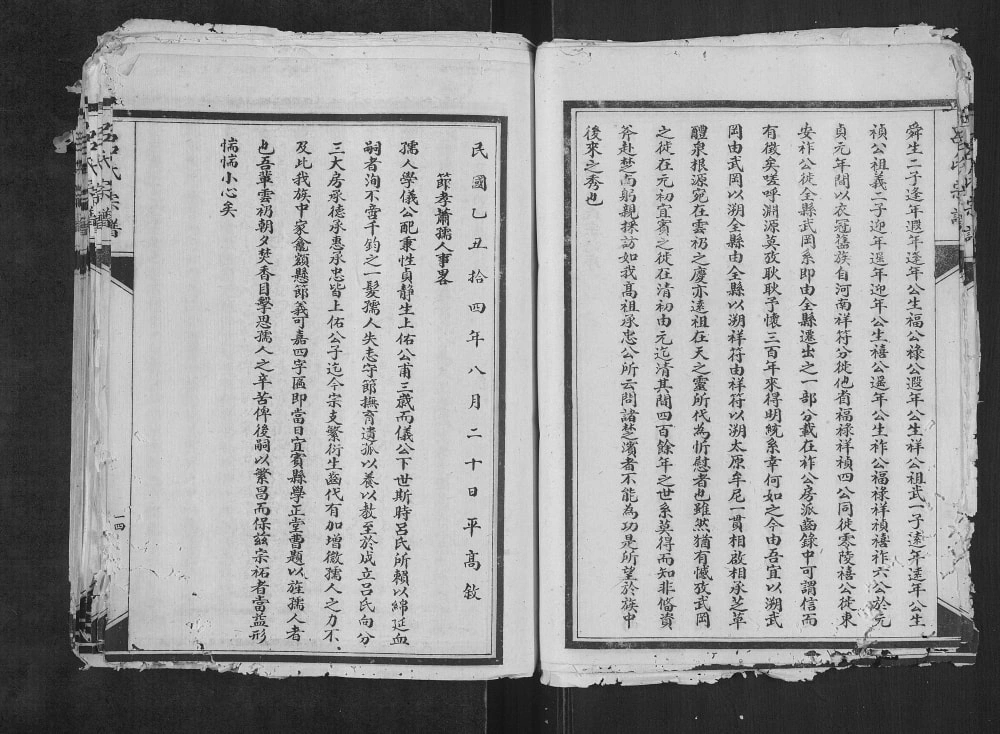 舜生二子逢年遐年逢年公生福公祿公遐年公生祥公祖武一子遠年遠年公生
禎公祖義二子迎年暹年迎年公生禧公暹年公生祚公福祿祥禎禧祚六公於元
貞元年間以衣冠舊族自河南祥符分徙他省福祿祥禎四公同徙零陵禧公徙東
安祚公徙全縣武岡系即由全縣遷出之一部分載在祚公房派齒錄中可謂信而
有徵矣嗟呼淵源莫攷耿耿予懷三百年來得明統系幸何如之今由吾宜以溯武
岡由武岡以溯全縣由全縣以溯祥符由祥符以溯太原牟尼一貫相啟相承芝草
醴泉根源宛在雲礽之慶亦遠祖在天之靈所代為忻慰者也雖然猶有憾攷武岡
之徙在元初宜賓之徙在清初由元迄清其間四百餘年之世系莫得而知非偹資
斧赴楚南躬親採訪如我高祖承忠公所云問諸楚濱者不能為功是所望於族中
後來之秀也
民國乙丑拾四年八月二十日平高敘
節孝蕭孺人事畧
孺人學儀公配秉性貞靜生上佑公甫三歲而儀公下世斯時呂氏所賴以綿延血
嗣者洵不啻千鈞之一髮孺人失志守節撫育遺孤以養以教至於成立呂氏向分
三大房承德承惠承忠皆上佑公子迄今宗支繁衍生齒代有加增微孺人之力不
及此我族中家龕額懸節義可嘉四字匾即當日宜賓縣學正堂曹題以旌孺人者
也吾輩雲礽朝夕焚香目擊思孺人之辛苦俾後嗣以繁昌而保玆宗祐者當益形
惴惴小心矣
一四
呂氏宗譜